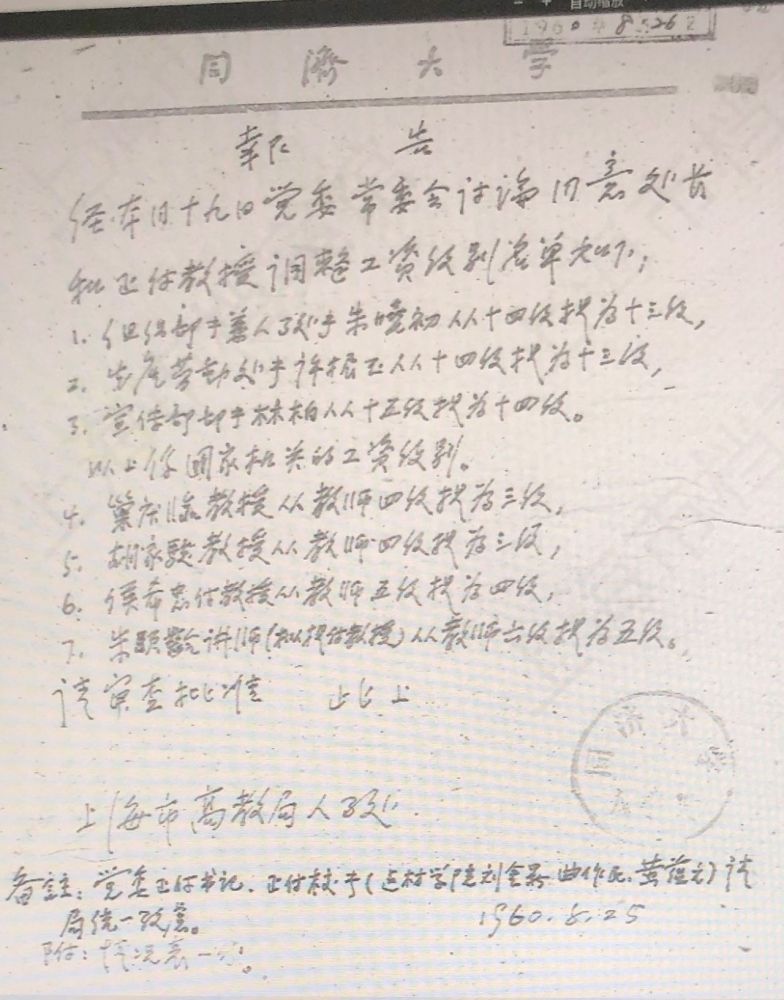 自动缩放
1960 8 26
同濟大学
報告
经本月十九日党委常委会讨论同意处长
和正付教授调整工资级别名单如下：
1. 组织部于兼人事处于朱晓初从十四级提为十三级，
2. 劳动处于许根玉从十四级提为十三级，
3. 宣传部部于林柏从十五级提为十四级。
以上系国家机关的工资级别。
4. 巢庆临教授从教师四级提为三级，
5. 胡家骏教授从教师四级提为三级，
6. 侯希忠付教授从教师五级提为四级，
7. 朱颐龄讲师（拟提付教授）从教师六级提为五级。
请审查批准 此上
同济大学
上海市高教局人事处
备註：党委正付书记、正付校于（建材学院刘 曲作民、黄蕴元）请
局统一改意。
1960.8.25
附：情况表一份。